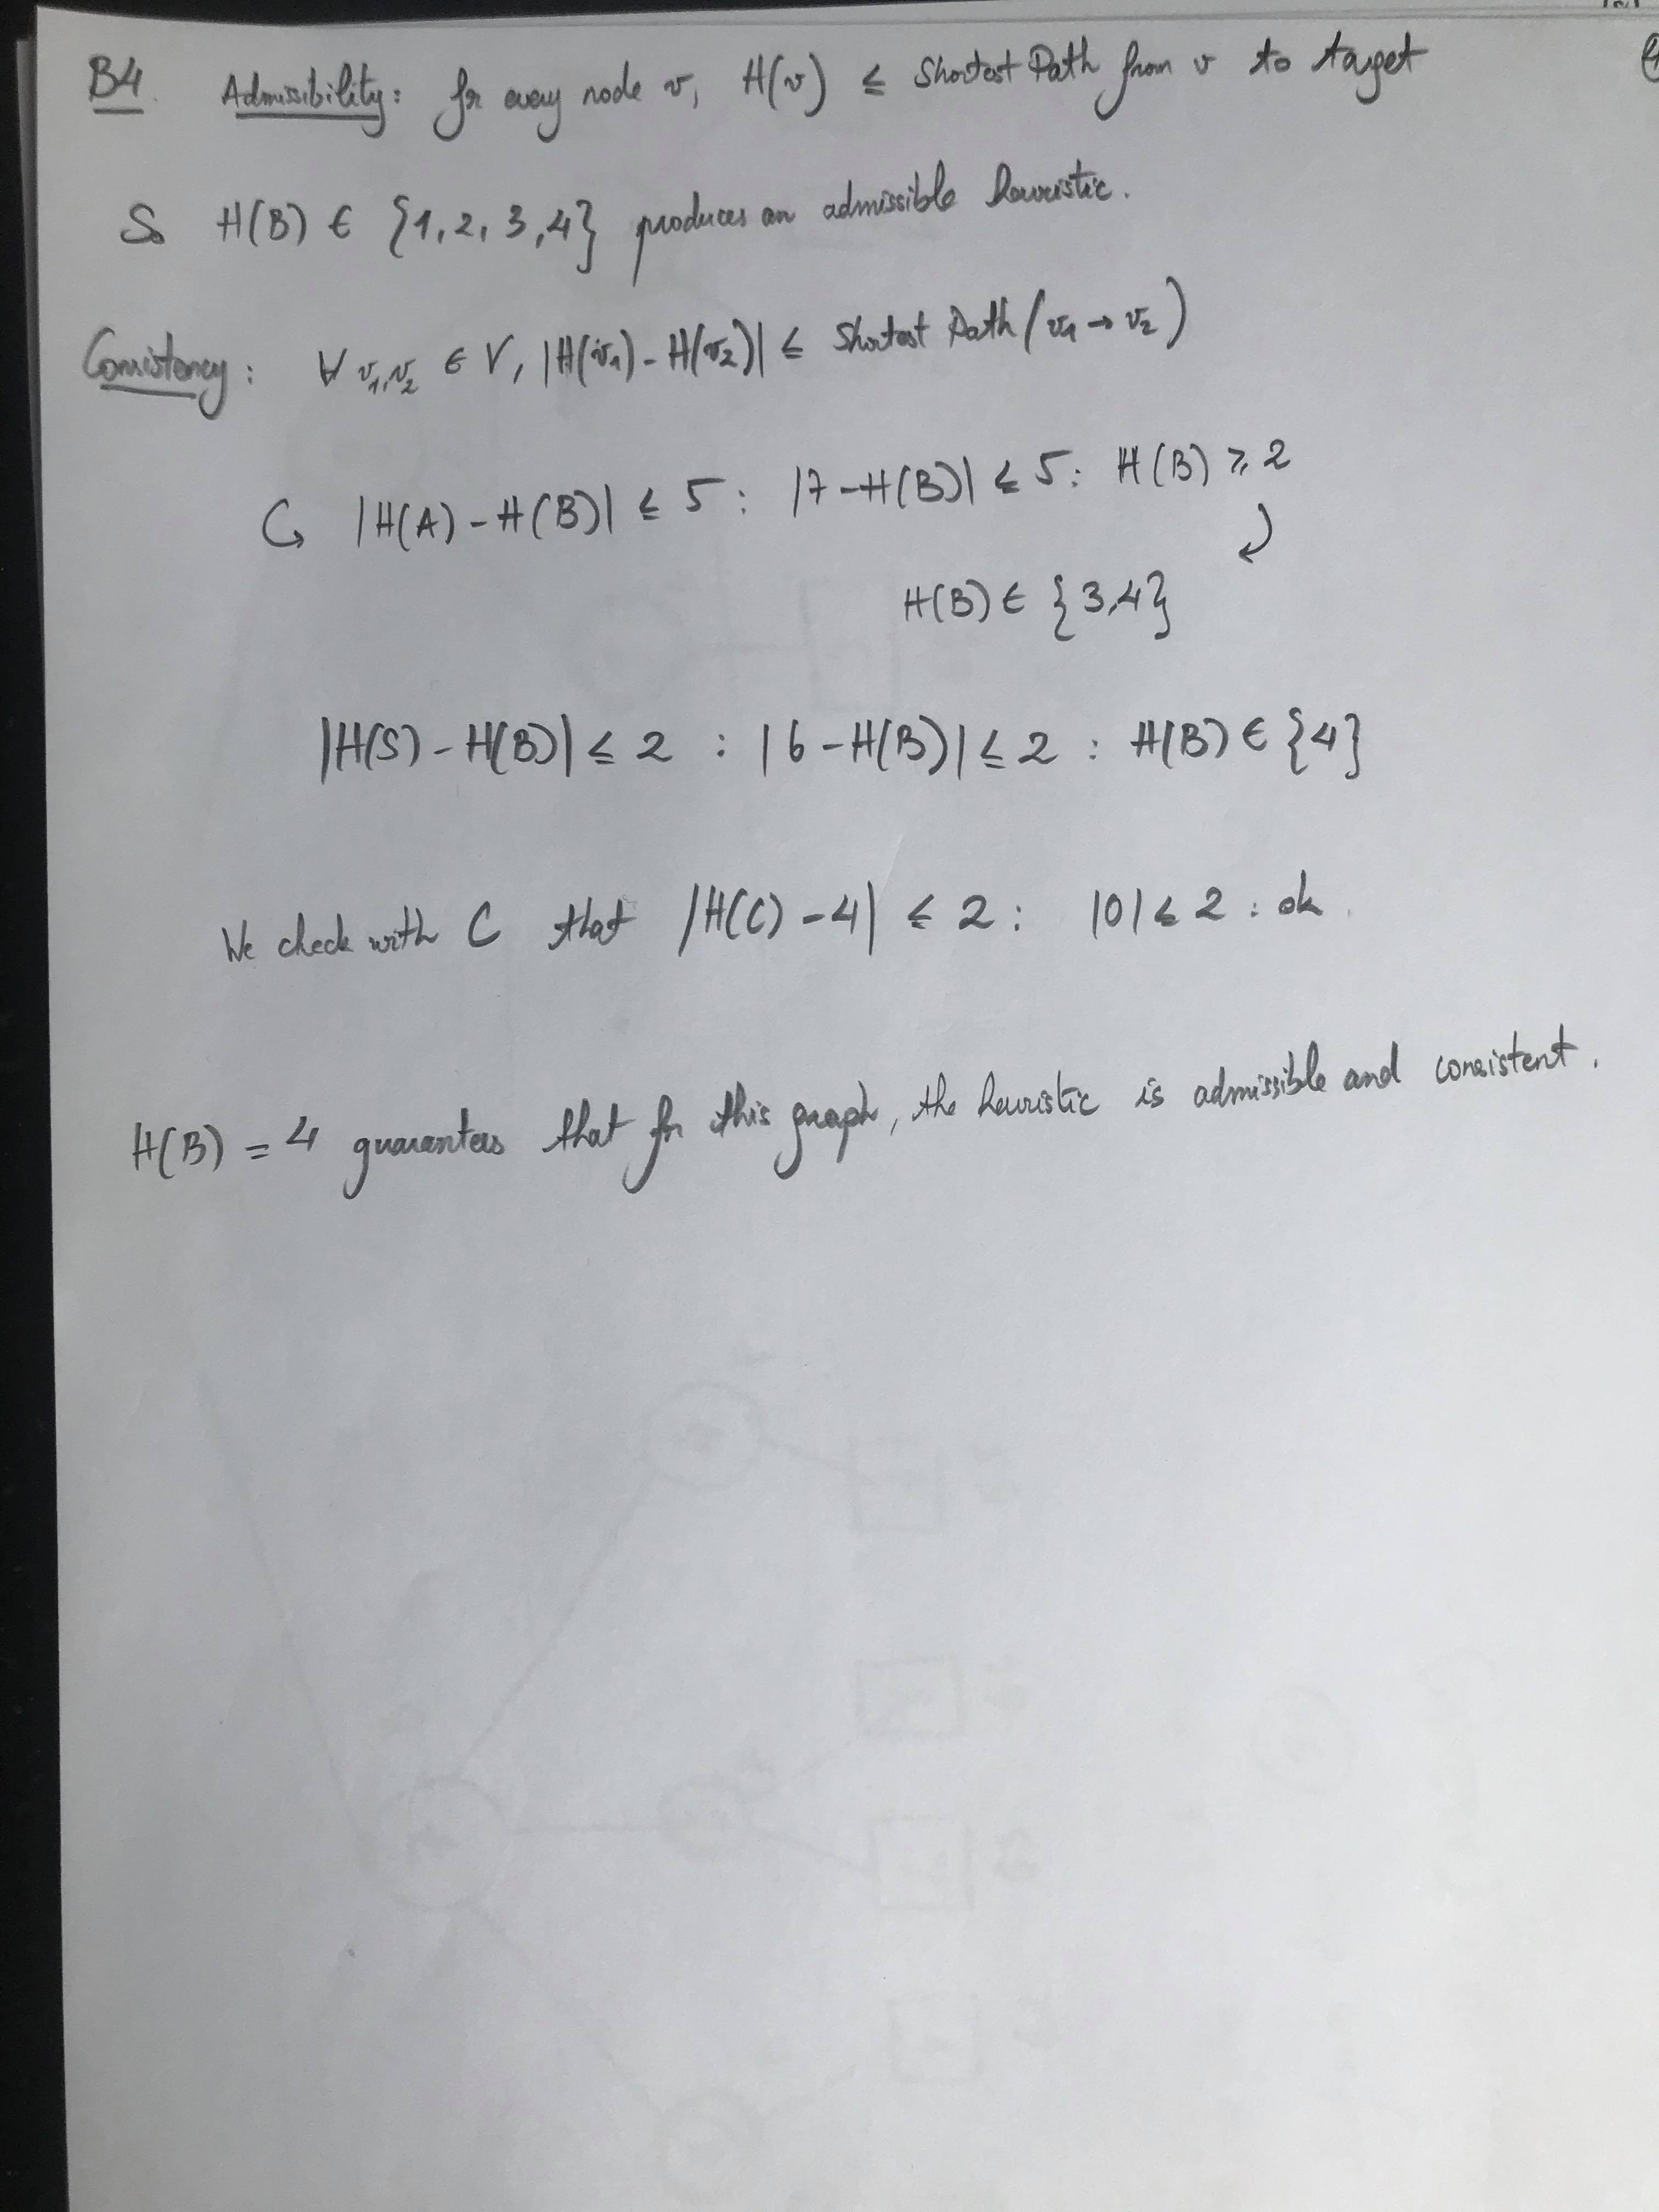 B4. Admissibility: for every node v, H(v) ≤ Shortest Path from v to target
So H(B) ∈ {1, 2, 3, 4} produces an admissible heuristic.
Consistency: ∀ v₁, v₂ ∈ V, |H(v₁) - H(v₂)| ≤ Shortest Path (v₁ → v₂)
↳ |H(A) - H(B)| ≤ 5 : |7 - H(B)| ≤ 5 : H(B) ≥ 2
H(B) ∈ {3,4}
|H(S) - H(B)| ≤ 2 : |6 - H(B)| ≤ 2 : H(B) ∈ {4}
We check with C that |H(C) - 4| ≤ 2 : |0| ≤ 2 : ok.
H(B) = 4 guarantees that for this graph, the heuristic is admissible and consistent.